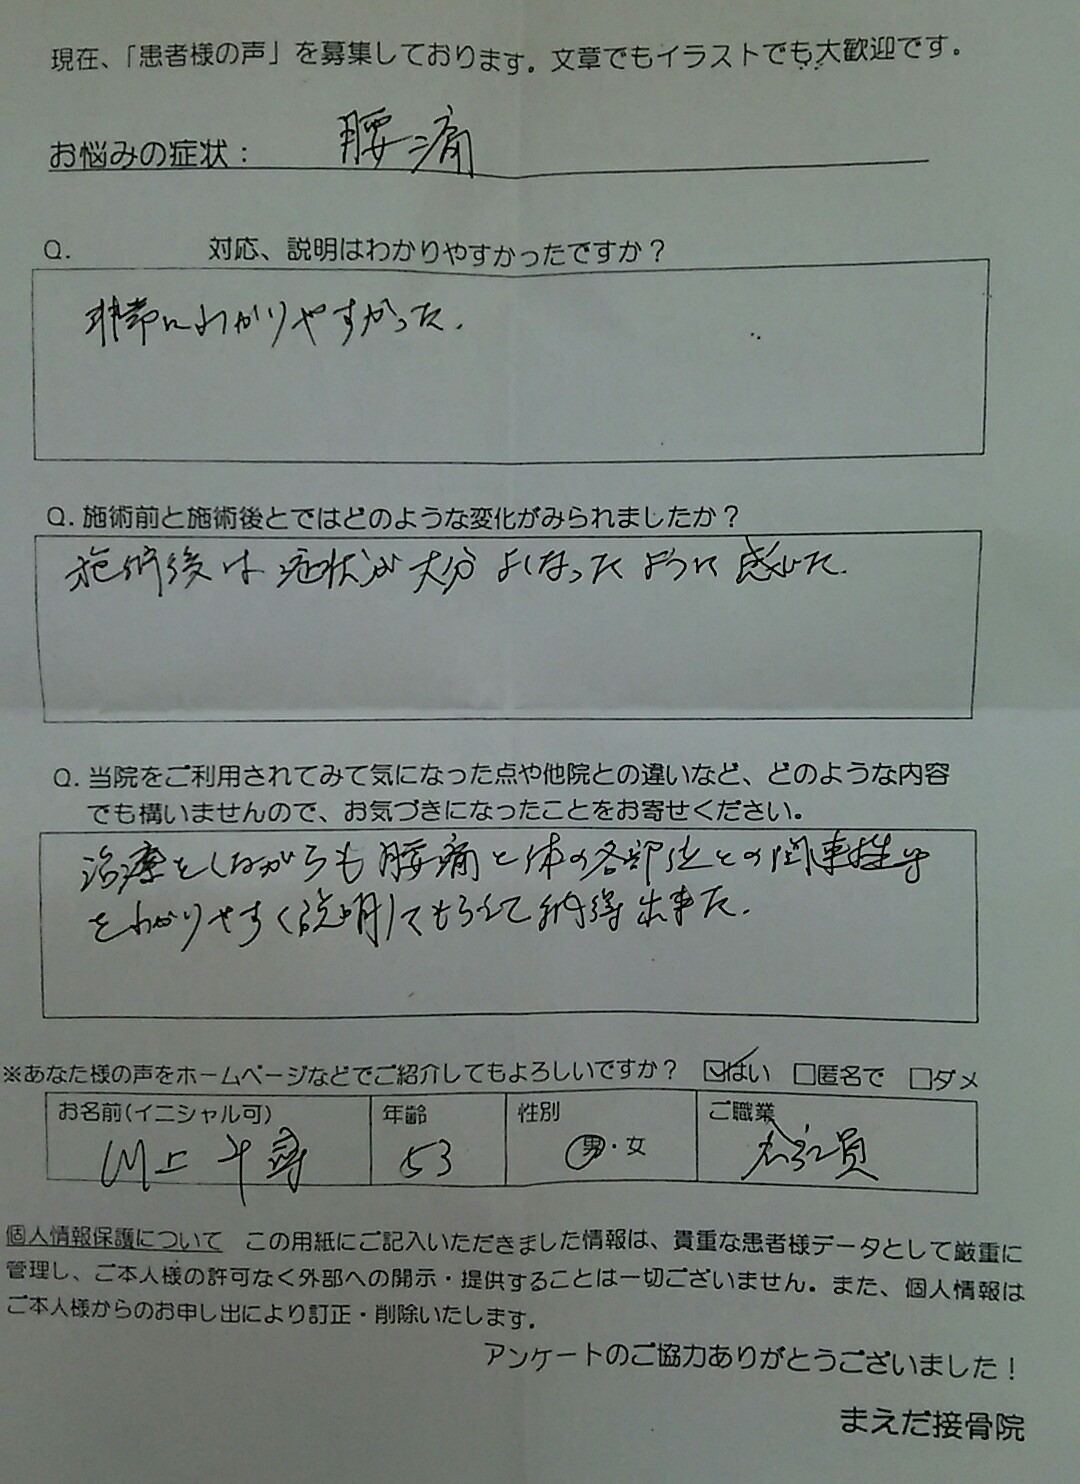 現在、「患者様の声」を募集しております。文章でもイラストでも大歓迎です。
お悩みの症状： 腰痛
Q. 対応、説明はわかりやすかったですか？
非常にわかりやすかった.
Q. 施術前と施術後とではどのような変化がみられましたか？
施術後は症状が大分よくなったように感じた.
Q. 当院をご利用されてみて気になった点や他院との違いなど、どのような内容
でも構いませんので、お気づきになったことをお寄せください。
治療をしながらも腰痛と体の各部位との関連性
をわかりやすく説明してもらえて納得出来た.
※あなた様の声をホームページなどでご紹介してもよろしいですか？ ☑はい □匿名で □ダメ
お名前(イニシャル可) 年齢 性別 ご職業
川上 53 男・女 員
個人情報保護について この用紙にご記入いただきました情報は、貴重な患者様データとして厳重に
管理し、ご本人様の許可なく外部への開示・提供することは一切ございません。また、個人情報は
ご本人様からのお申し出により訂正・削除いたします。
アンケートのご協力ありがとうございました！
まえだ接骨院